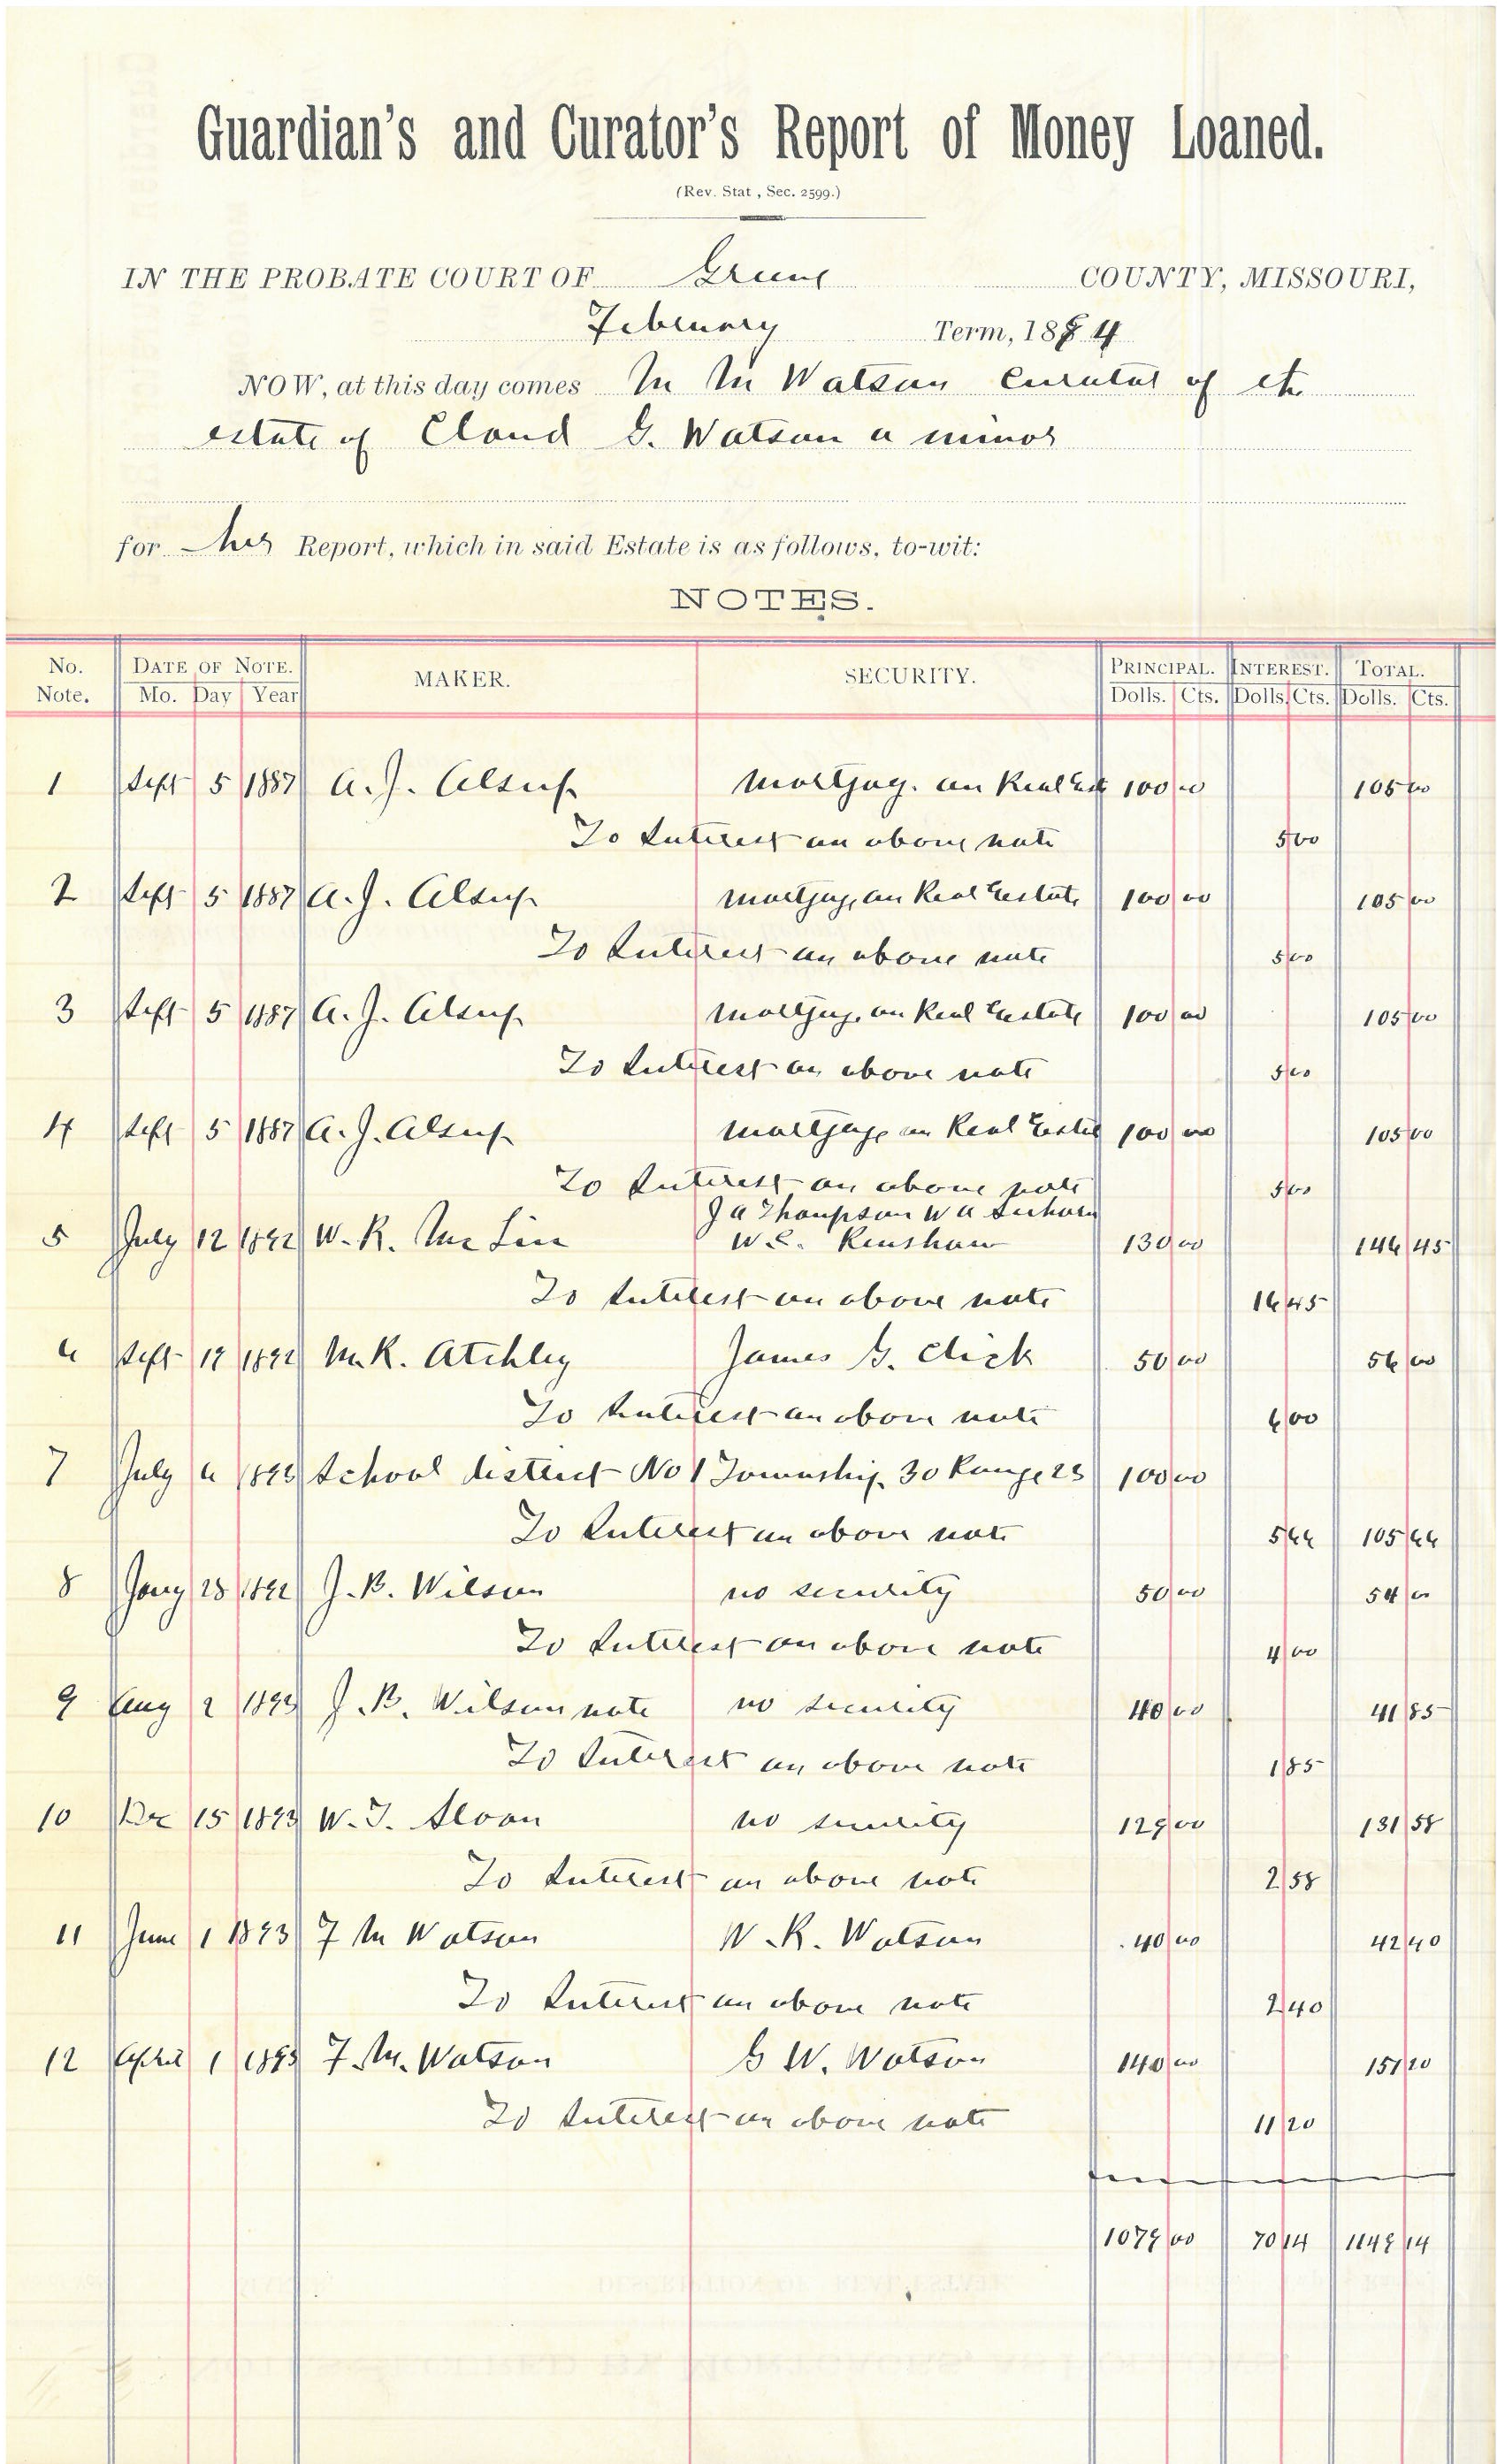 Guardian's and Curator's Report of Money Loaned.
(Rev. Stat., Sec. 2599.)
IN THE PROBATE COURT OF Greene COUNTY, MISSOURI,
February Term, 1894
NOW, at this day comes M M Watson Curator of the
estate of Claud G. Watson a minor
for his Report, which in said Estate is as follows, to-wit:
NOTES.
No. Note. DATE OF NOTE. Mo. Day Year MAKER. SECURITY. PRINCIPAL. Dolls. Cts. INTEREST. Dolls. Cts. TOTAL. Dolls. Cts.
1 Sept 5 1887 A. J. Alsup Mortgag. on Real Est 100 00 105 00
To Interest on above note 5 00
2 Sept 5 1887 A. J. Alsup Mortgag on Real Estate 100 00 105 00
To Interest on above note 5 00
3 Sept 5 1887 A. J. Alsup Mortgag on Real Estate 100 00 105 00
To Interest on above note 5 00
4 Sept 5 1887 A. J. Alsup Mortgage on Real Estate 100 00 105 00
To Interest on above note 5 00
J A Thompson W A
5 July 12 1892 W. R. W. C. Renshaw 130 00 146 45
To Interest on above note 16 45
6 Sept 1892 M. K. Atchley James G. Click 50 00 56 00
To Interest on above note 6 00
7 July 6 1893 School district No 1 Township 30 Range 23 100 00
To Interest on above note 5 66 105 66
8 Jany 28 1892 J. B. Wilson no security 50 00 54 00
To Interest on above note 4 00
9 Aug 2 1893 J. B. Wilson note no security 40 00 41 85
To Interest on above note 1 85
10 Dec 15 1893 W. T. Sloan no security 129 00 131 58
To Interest on above note 2 58
11 June 1 1893 F M Watson W. R. Watson 40 00 42 40
To Interest on above note 2 40
12 April 1 1893 F. M. Watson G W. Watson 140 00 151 20
To Interest on above note 11 20
1079 00 70 14 1149 14